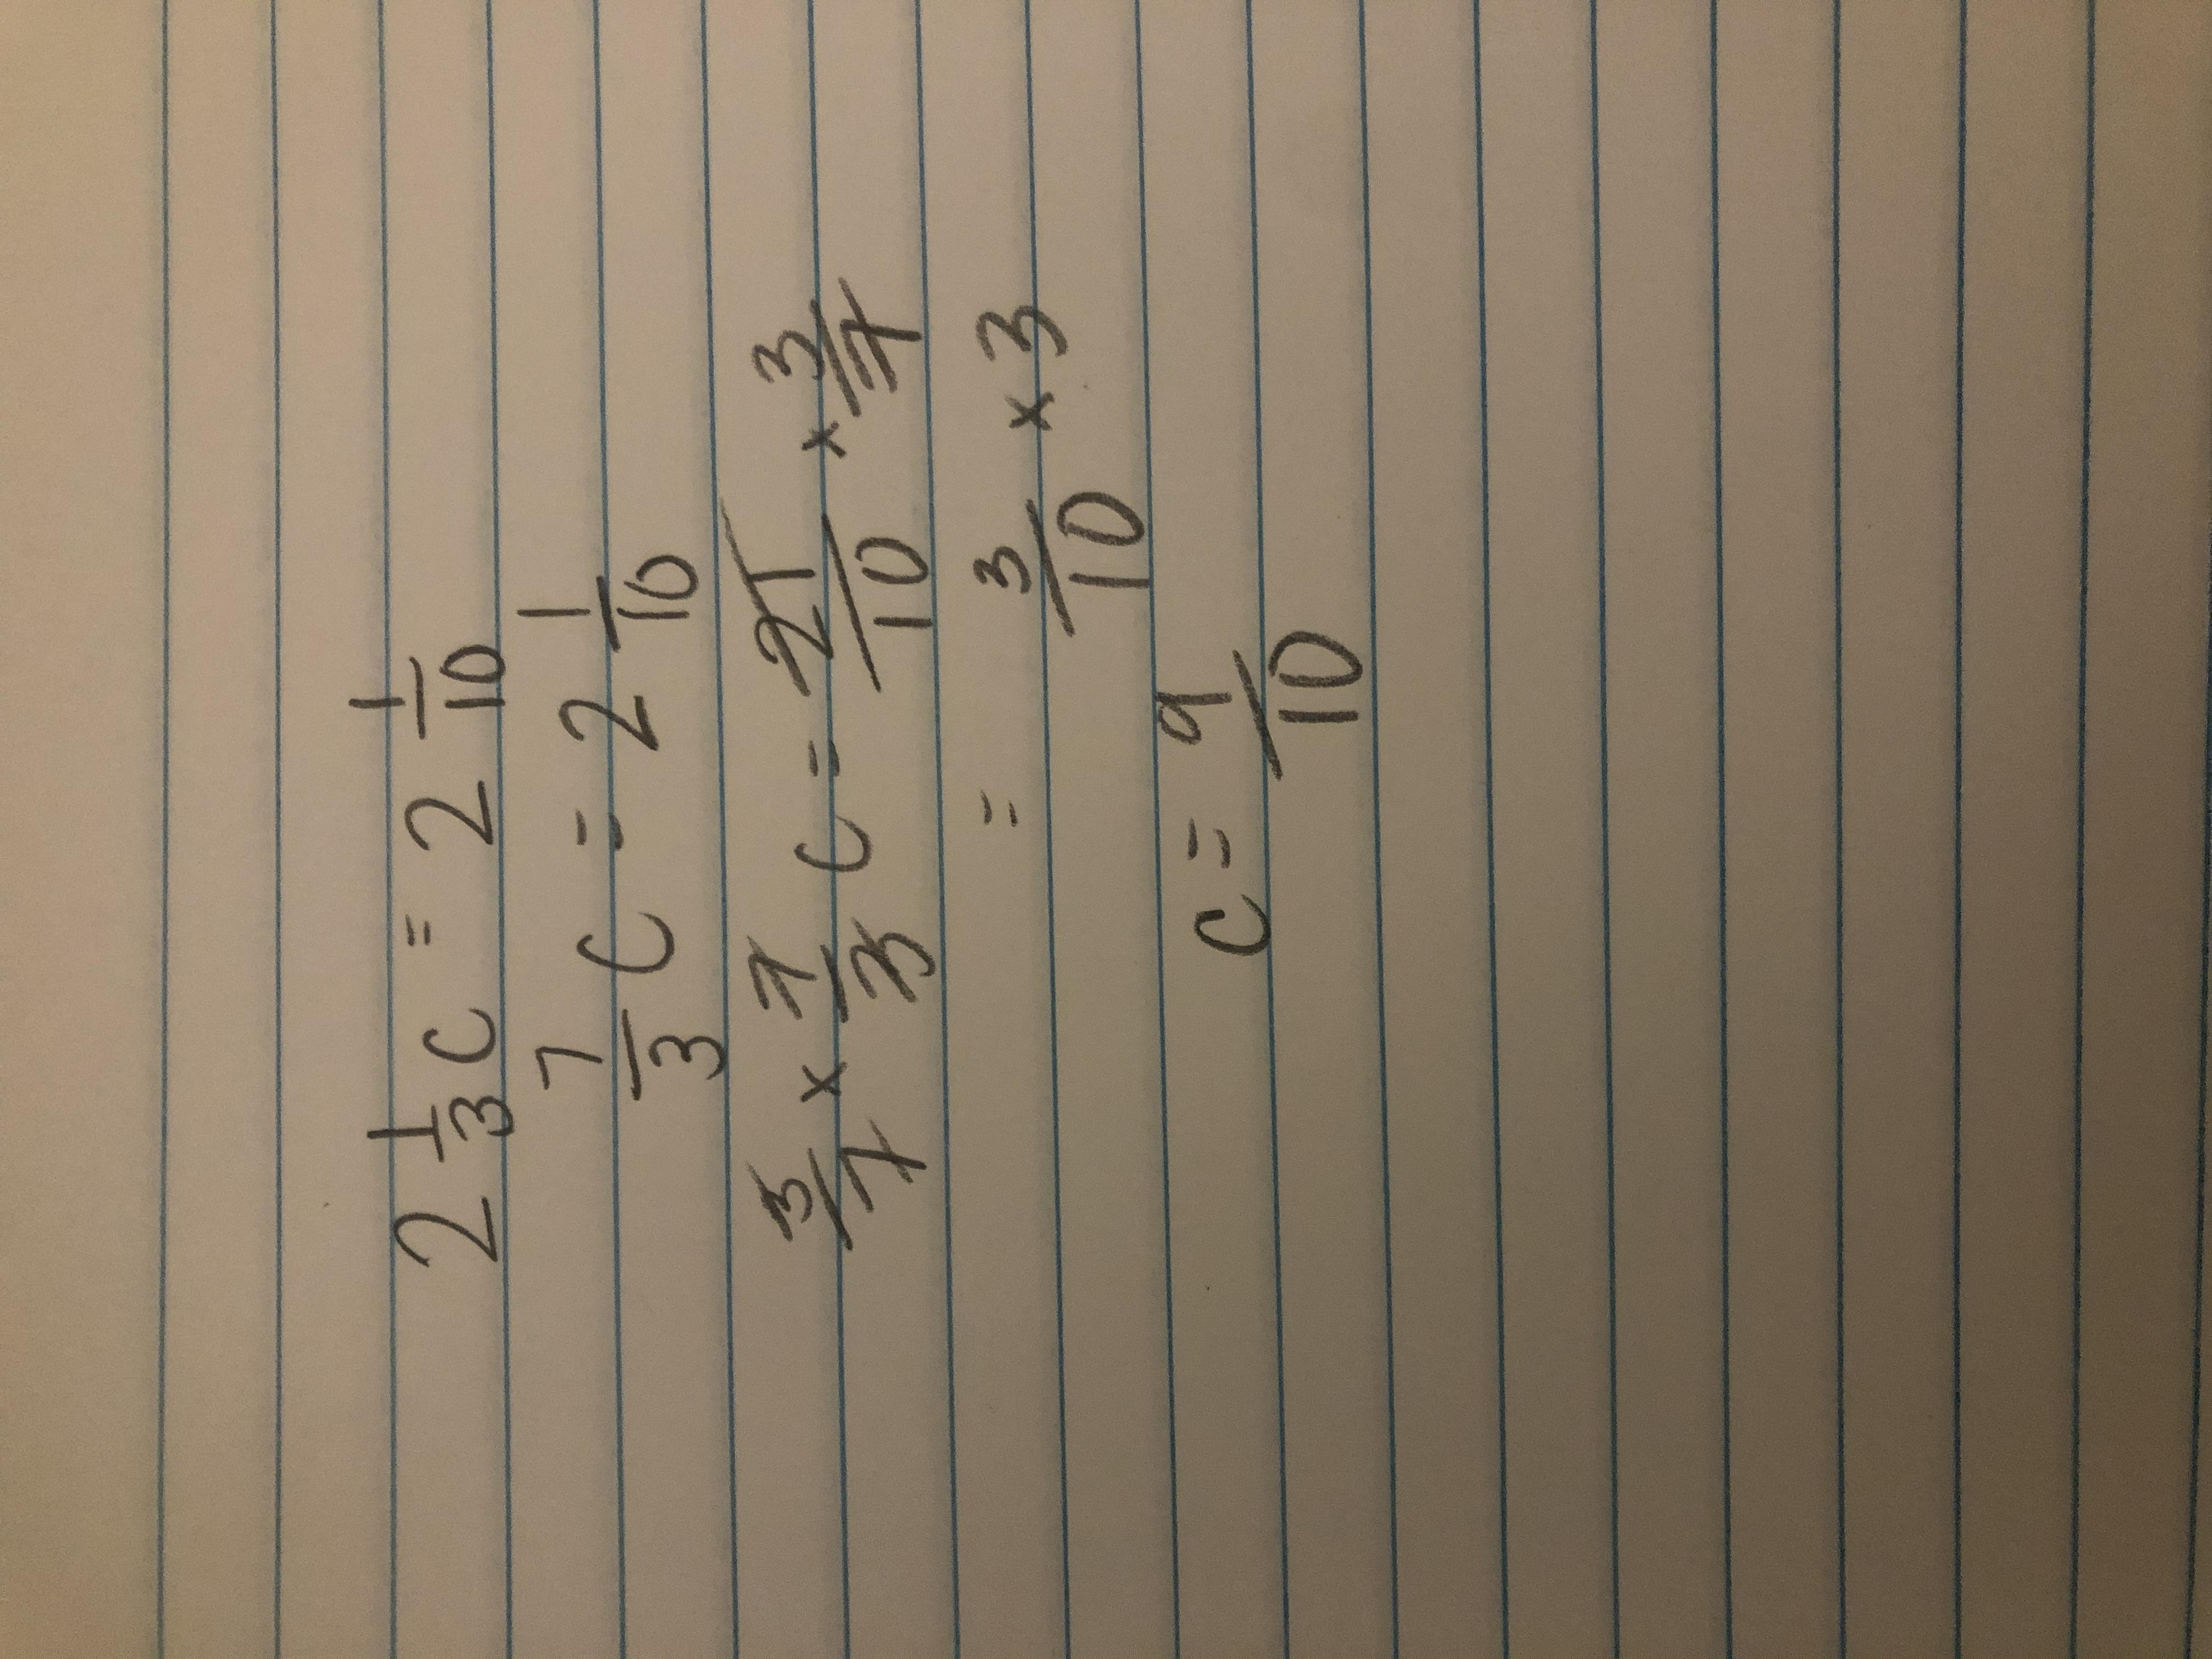 2 1/3 c = 2 1/10
7/3 c = 2 1/10
3/7 x 7/3 c = 21/10 x 3/7
= 3/10 x 3
c = 9/10